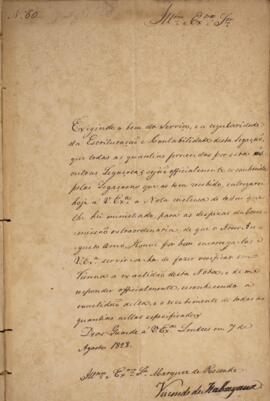 N. 60.
Illmo. e Exmo. Snr.
Exigindo o bem do Serviço, e a regularidade
da Escrituração e Contabilidade desta Legação,
que todas as quantias fornecidas por esta
outras Legações, sejão officialmente
pelas Legações que as tem recebido,
hoje a V. Exa. a Nota inclusa de
lhe foi ministrado, para as despezas da
missão extraordinaria, de que o
Augusto Amo houve por bem encarregalo.
V. Exa. servir-se-ha de fazer verificar em
Vienna a exactidão desta Nota, e de me
responder officialmente, reconhecendo a
exactidão della, e o recebimento de todas as
quantias nella especificadas.
Deos Guarde a V. Exa. Londres em 7 de
Agosto 1828.
Illmo. e Exmo. Sr. Marquez de Rezende
Visconde de Itabayana